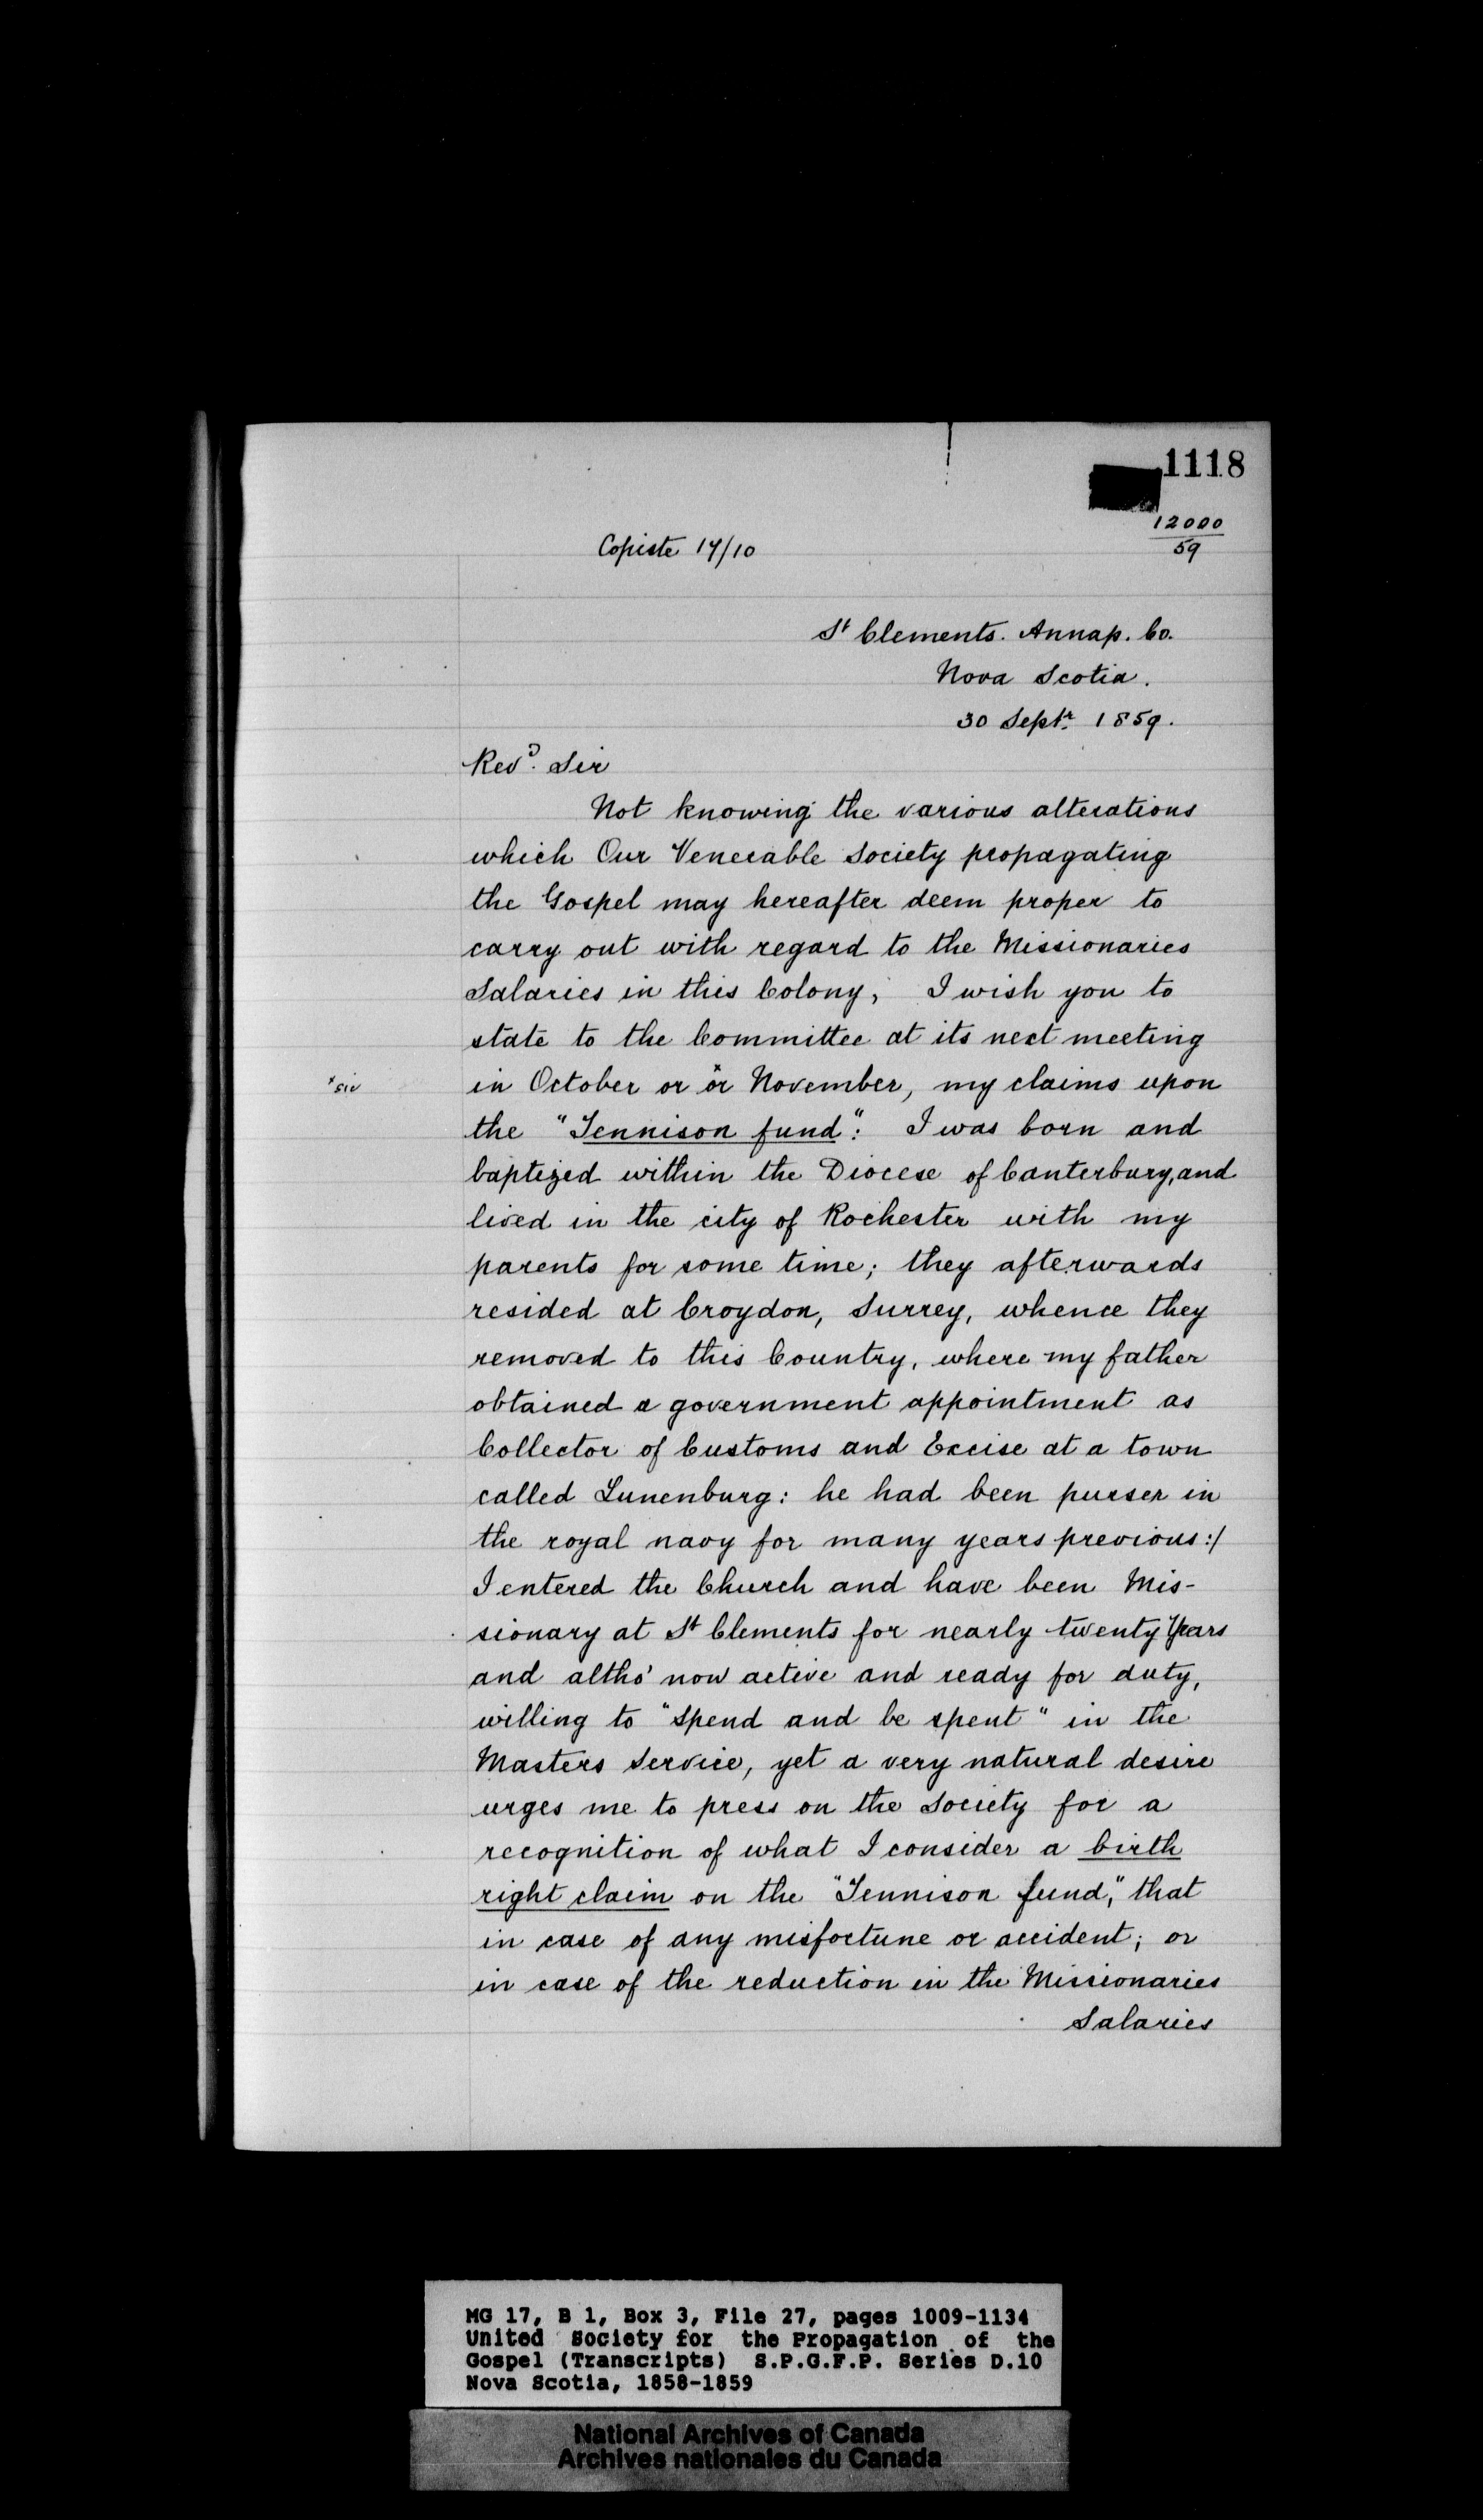 1118
12000
59
Copiste 17/10
St Clements. Annap. Co.
Nova Scotia.
30 Septr. 1859.
Revd. Sir
Not knowing the various alterations
which Our Venerable Society propagating
the Gospel may hereafter deem proper to
carry out with regard to the Missionaries
Salaries in this Colony, I wish you to
state to the Committee at its next meeting
x sic
in October or xor November, my claims upon
the "Tennison fund": I was born and
baptized within the Diocese of Canterbury, and
lived in the city of Rochester with my
parents for some time; they afterwards
resided at Croydon, Surrey, whence they
removed to this Country, where my father
obtained a government appointment as
Collector of Customs and Excise at a town
called Lunenburg: he had been purser in
the royal navy for many years previous:/
I entered the Church and have been Mis-
sionary at St Clements for nearly twenty Years
and altho' now active and ready for duty,
willing to "spend and be spent" in the
Masters Service, yet a very natural desire
urges me to press on the Society for a
recognition of what I consider a birth
right claim on the "Tennison fund," that
in case of any misfortune or accident; or
in case of the reduction in the Missionaries
Salaries
MG 17, B 1, Box 3, File 27, pages 1009-1134
United Society for the Propagation of the
Gospel (Transcripts) S.P.G.F.P. Series D.10
Nova Scotia, 1858-1859
National Archives of Canada
Archives nationales du Canada